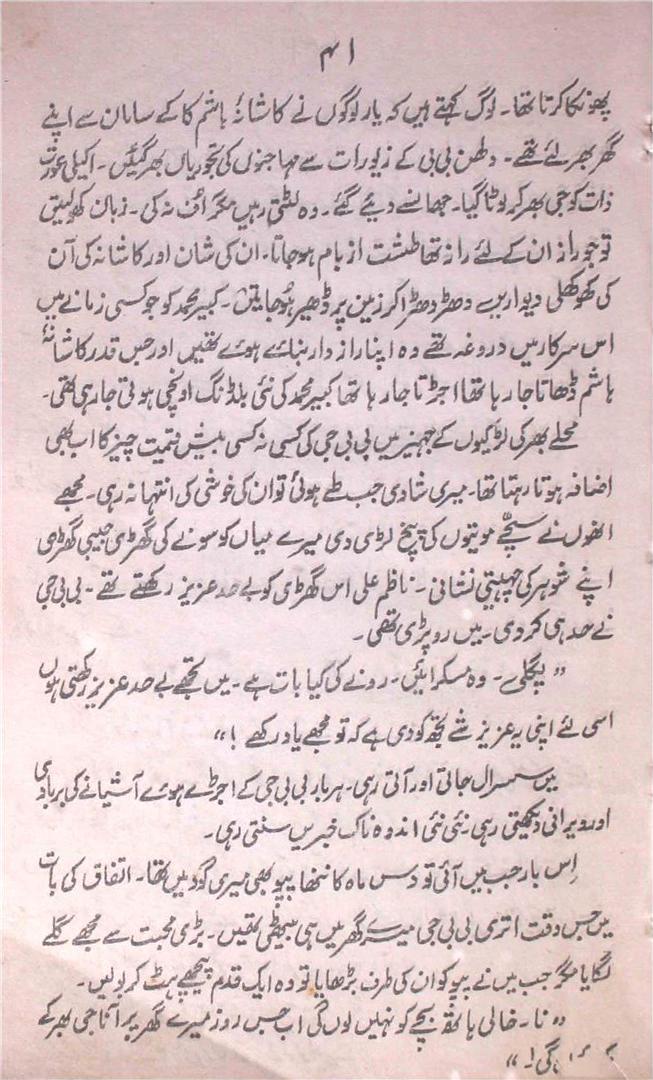 ۴۱
پھونکا کرتا تھا۔ لوگ کہتے ہیں کہ یار لوگوں نے کاشانۂ ہاشم کا کے سامان سے اپنے
گھر بھر لئے تھے۔ دلھن بی بی کے زیورات سے مہاجنوں کی تجوریاں بھر گئیں۔ اکیلی عورت
ذات کو جی بھر کر لوٹا گیا۔ جھانسے دیئے گئے۔ وہ لٹتی رہیں مگر اُف نہ کی۔ زبان کھولتیں
تو جو راز ان کے لئے راز تھا طشت از بام ہو جاتا۔ ان کی شان اور کاشانہ کی آن
کی کھوکھلی دیواریں دھڑ دھڑا کر زمین پر ڈھیر ہو جاتیں۔ کبیر محمد کو جو کسی زمانے میں
اس سرکار میں دروغہ تھے وہ اپنا راز دار بنائے ہوئے تھیں اور جس قدر کاشانۂ
ہاشم ڈھاتا جا رہا تھا اجڑتا جا رہا تھا کبیر محمد کی نئی بلڈنگ اونچی ہوتی جا رہی تھی۔
محلے بھر کی لڑکیوں کے جہیز میں بی بی جی کی کسی نہ کسی بیش قیمت چیز کا اب بھی
اضافہ ہوتا رہتا تھا۔ میری شادی جب طے ہوئی تو ان کی خوشی کی انتہا نہ رہی۔ مجھے
انھوں نے سچّے موتیوں کی پنچ لڑی دی میرے میاں کو سونے کی گھڑی جیبی گھڑی
اپنے شوہر کی چہیتی نشانی۔ ناظم علی اس گھڑی کو بے حد عزیز رکھتے تھے۔ بی بی جی
نے حد ہی کر دی۔ میں رو پڑی تھی۔
"پگلی۔ وہ مسکرائیں۔ رونے کی کیا بات ہے۔ میں تجھے بے حد عزیز رکھتی ہوں
اسی لئے اپنی یہ عزیز شے تجھ کو دی ہے کہ تو مجھے یاد رکھے!"
میں سسرال جاتی اور آتی رہی۔ ہر بار بی بی جی کے اجڑے ہوئے آشیانے کی بربادی
اور ویرانی دیکھتی رہی۔ نئی نئی اندوہ ناک خبریں سنتی رہی۔
اِس بار جب میں آئی تو دس ماہ کا ننھا پپو بھی میری گود میں تھا۔ اتفاق کی بات
میں جس وقت اتری بی بی جی میرے گھر میں ہی بیٹھی تھیں۔ بڑی محبت سے مجھے گلے
لگایا مگر جب میں نے پپو کو ان کی طرف بڑھایا تو وہ ایک قدم پیچھے ہٹ کر بولیں۔
"نا۔ خالی ہاتھ بچے کو نہیں لوں گی اب جس روز میرے گھر پر آنا جی بھر کے
گی!"